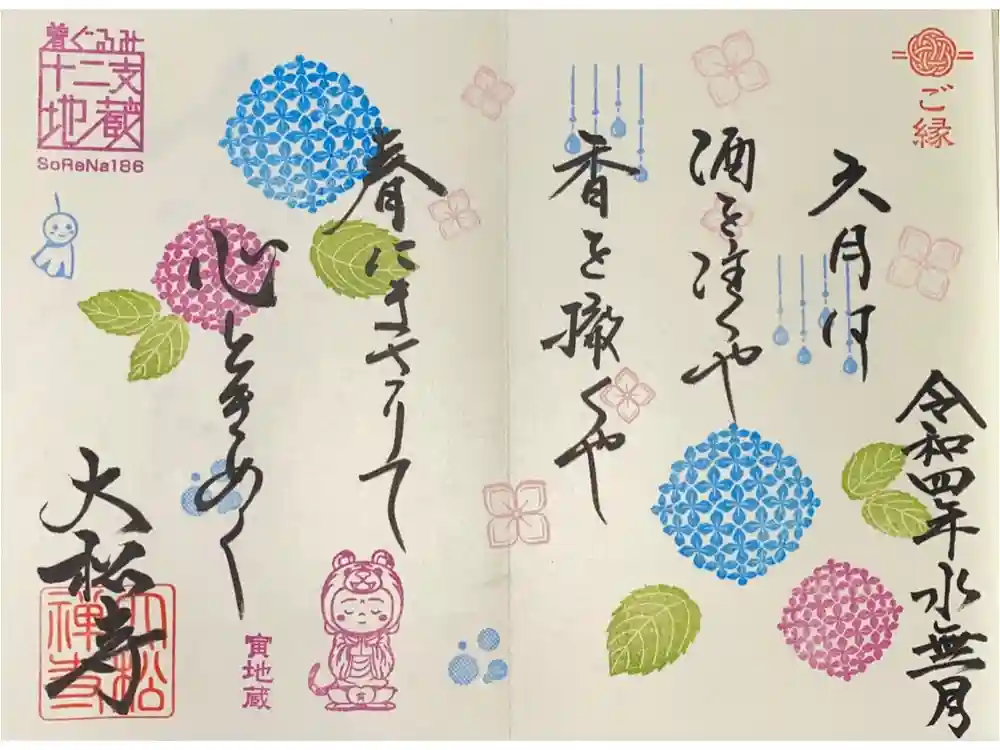 ご縁
令和四年 水無月
六月は
酒を注くや
香を撒くや
春にまさりて
心ときめく
大松寺
大松禅寺
寅地蔵
着ぐるみ
十二支
地蔵
SoReNa186